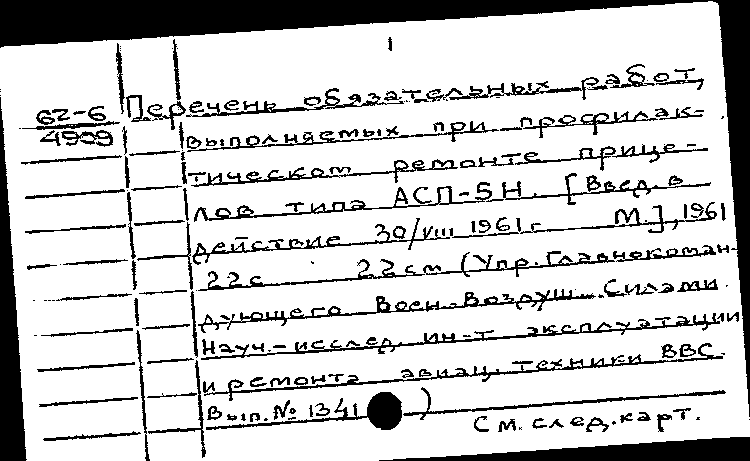 62-6
4909
Перечень обязательных работ,
выполняемых при профилак-
тическом ремонте прице-
лов типа АСП-5Н. [Введ. в
действие 30/VIII 1961 г. М.], 1961
22 с 22 см (Упр. Главнокоман-
дующего Воен.-Воздуш. Силами.
Науч.-исслед. ин-т эксплуатации
и ремонта авиац. техники ВВС.
Вып. № 1341 )
См. след. карт.